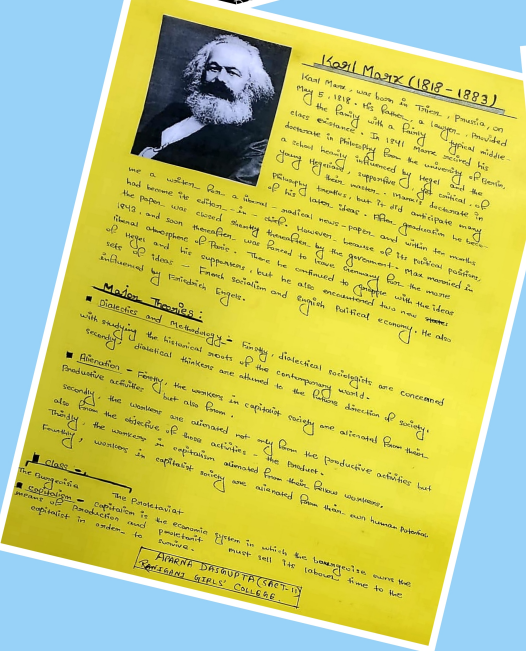 Karl Marx (1818-1883)
Karl Marx, was born in Trier, Prussia, on
May 5, 1818. His father, a lawyer, provided
the family with a fairly typical middle-
class existance. In 1841 Marx secured his
doctorate in Philosophy from the university of Berlin,
a school heavily influenced by Hegel and the
young Hegelians, supportive, yet critical, of
their master. Marx's doctorate in
Philosophy treaties, but it did anticipate many
of his later ideas. After graduation he beca-
me a writer for a liberal-radical news-paper and within ten months
had become its editor-in-chief. However, because of its political positions,
the paper was closed shortly thereafter by the government. Marx married in
1843, and soon thereafter was forced to leave Germany for the more
liberal atmosphere of Paris. There he continued to grapple with the ideas
of Hegel and his supporters, but he also encountered two new
sets of ideas - French socialism and english Political economy. He also
influenced by Friedrich Engels.
Major Theories:
Dialectics and Methodology - Firstly, dialectical sociologists are concerned
with studying the historical roots of the contemporary world.
secondly dialectical thinkers are attuned to the future direction of society.
Alienation - Firstly, the workers in capitalist society are alienated from their
Productive activities but also from.
secondly, the workers are alienated not only from the productive activities but
also from the objective of those activities - the Product.
Thirdly, the workers in capitalism alienated from their fellow workers.
Fourthly, workers in capitalist society are alienated from their own human Potential
Class -
The Burgeoisia The Proletaviat
Capitalism - Capitalism is the economic system in which the bourgeoise owns the
means of Production and proletarit must sell its labour time to the
capitalist in order to survive.
APARNA DASGUPTA (SACT-1)
RANIGANJ GIRLS' COLLEGE.